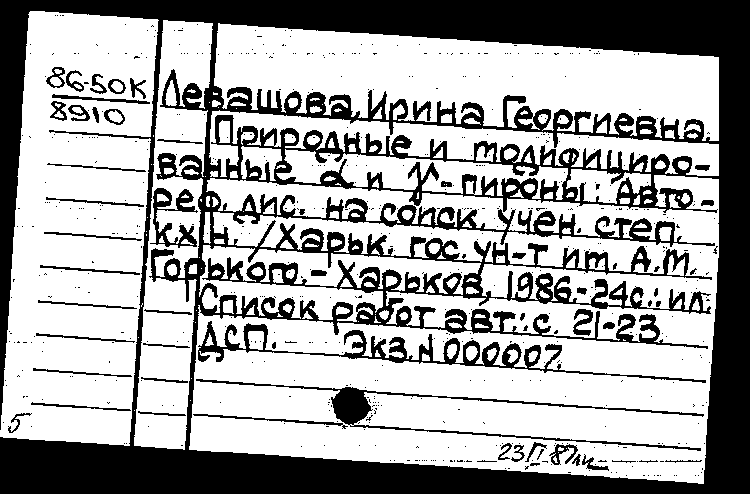 86-50К
8910
Левашова, Ирина Георгиевна.
Природные и модифициро-
ванные α и γ-пироны: Авто-
реф. дис. на соиск. учен. степ.
к.х.н. /Харьк. гос. ун-т им. А.М.
Горького.- Харьков, 1986.-24с.: ил.
Список работ авт.: с. 21-23.
ДСП. Экз. N 000007.
5
23 II 87